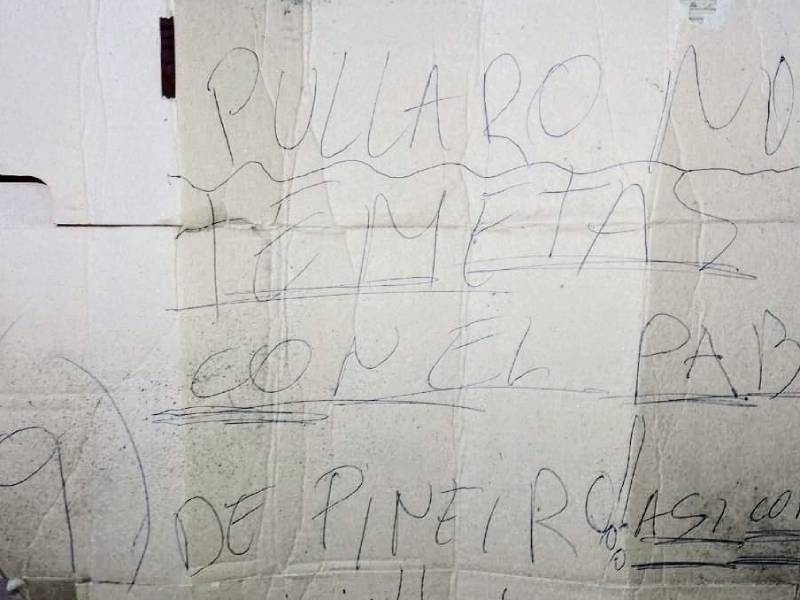 PULLARO NO
TE METAS
CON EL PAB
DE PINEIRO! ASI CON
9)